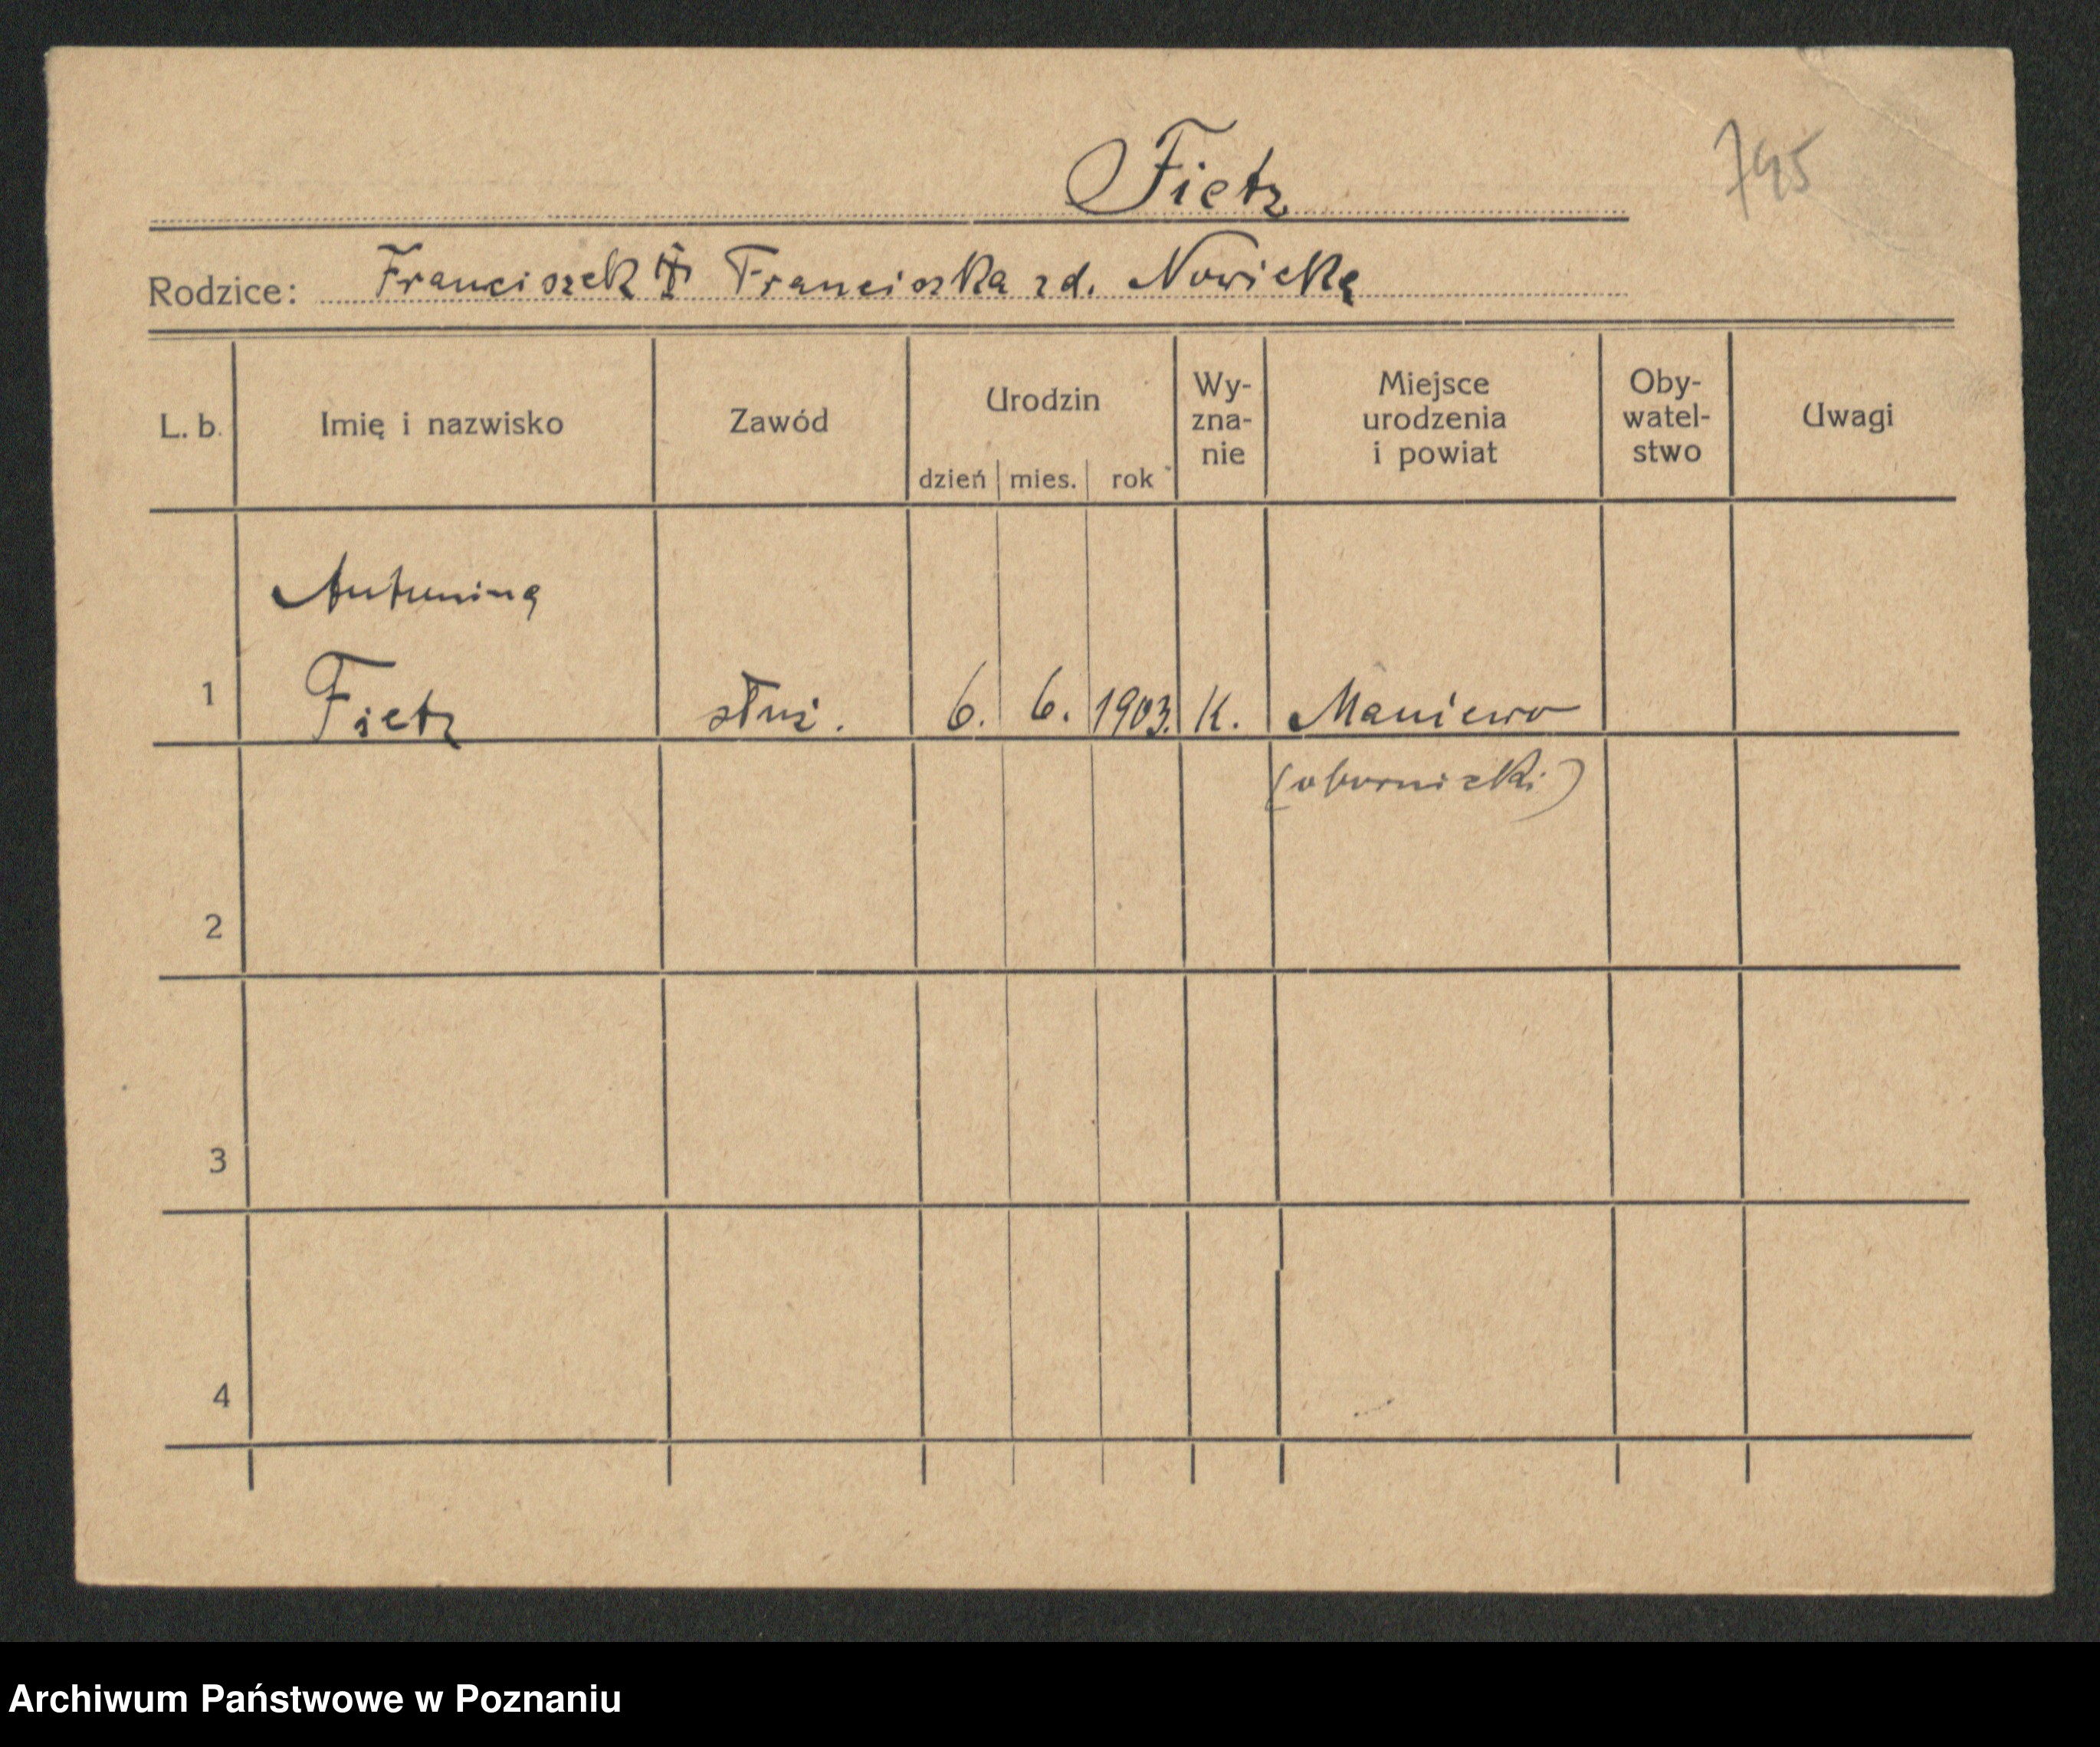 Fietz
795
Rodzice: Franciszek Franciszka zd. Nowicka
L. b. Imię i nazwisko Zawód Urodzin dzień mies. rok Wy-zna-nie Miejsce urodzenia i powiat Oby-watel-stwo Uwagi
Antonina
1 Fietz służ. 6. 6. 1903. K. Maniewo
(obornicki)
2
3
4
Archiwum Państwowe w Poznaniu